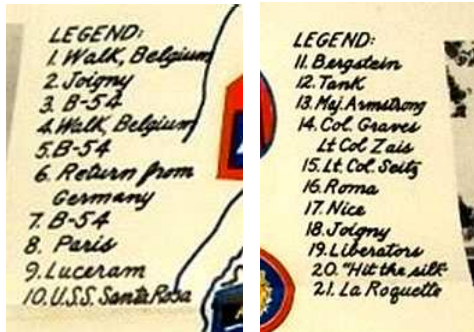 LEGEND:
1. Walk, Belgium
2. Joigny
3. B-54
4. Walk, Belgium
5. B-54
6. Return from
Germany
7. B-54
8. Paris
9. Luceram
10. U.S.S. Santa Rosa
LEGEND:
11. Bergstein
12. Tank
13. Maj. Armstrong
14. Col. Graves
Lt Col Zais
15. Lt. Col. Seitz
16. Roma
17. Nice
18. Joigny
19. Liberators
20. "Hit the silk"
21. La Roquette